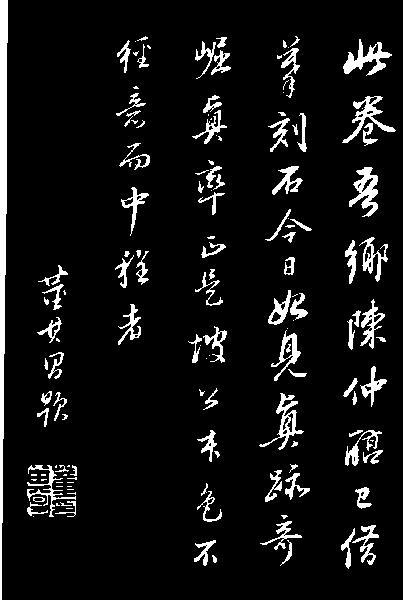 此卷吾鄉陳仲醇已借
摹刻石今日始見真跡奇
崛真率正是坡公本色不
徑意而中程者
董其昌題